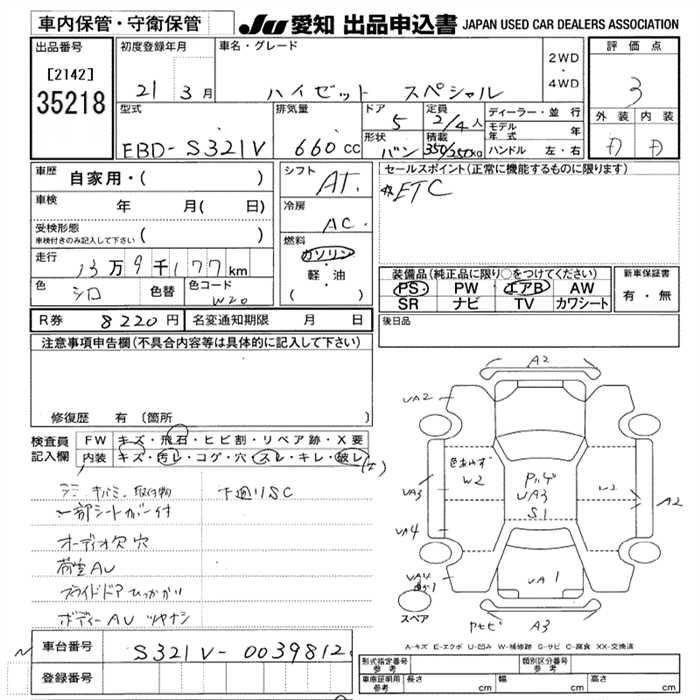 車内保管・守衛保管
JU 愛知 出品申込書 JAPAN USED CAR DEALERS ASSOCIATION
出品番号
[2142]
35218
初度登録年月
21 3月
車名・グレード
ハイゼット スペシャル
2WD
・
4WD
評価点
3
外装 内装
D D
型式
EBD-S321V
排気量
660cc
ドア
5
定員
2/4人
形状
バン
積載
350/250kg
ディーラー・並行
モデル年式 年
ハンドル 左・右
車歴
自家用・( )
車検
年 月( 日)
受検形態
車検付きのみ記入して下さい ( )
走行
13万9千177km
色
シロ
色替
色コード
W20
シフト
AT.
冷房
AC.
燃料
ガソリン
・
軽・油
( )
セールスポイント(正常に機能するものに限ります)
ETC
装備品(純正品に限り○をつけてください)
PS PW エアB AW
SR ナビ TV カワシート
新車保証書
有・無
R券 8220円 名変通知期限 月 日
後日品
注意事項申告欄(不具合内容等は具体的に記入して下さい)
修復歴 有 〔箇所 〕
検査員
記入欄
FW キズ・飛石・ヒビ割・リペア跡・X要
内装 キズ・汚レ・コゲ・穴・スレ・キレ・破レ
取付物 下廻りSC
一部シートカバー付
オーディオ欠 穴
荷室AU
ボディーAU ツヤナシ
A2
UA2
W2
UA3
UA3
S1
W2
A2
UA4
UA4
UA1
スペア
A3
A-キズ E-エクボ U-凹み W-補修跡 S-サビ C-腐食 XX-交換済
車台番号
S321V-0039812
登録番号
形式指定番号
参考
類別区分番号
参考
車庫証明用
参考
長さ cm 幅 cm 高さ cm